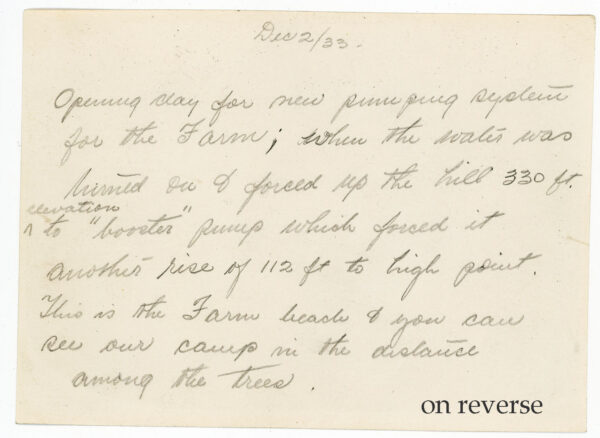 Dec 2/33.
Opening day for new pumping system
for the Farm; when the water was
turned on & forced up the hill 330 ft.
elevation
^ to "booster" pump which forced it
another rise of 112 ft to high point.
This is the Farm beach & you can
see our camp in the distance
among the trees.
on reverse